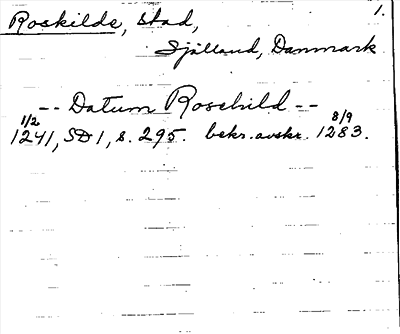 Roskilde, stad, 1.
Själland, Danmark
-- Datum Roschild --
1/2 8/9
1241, SD 1, s. 295. bekr. avskr. 1283.